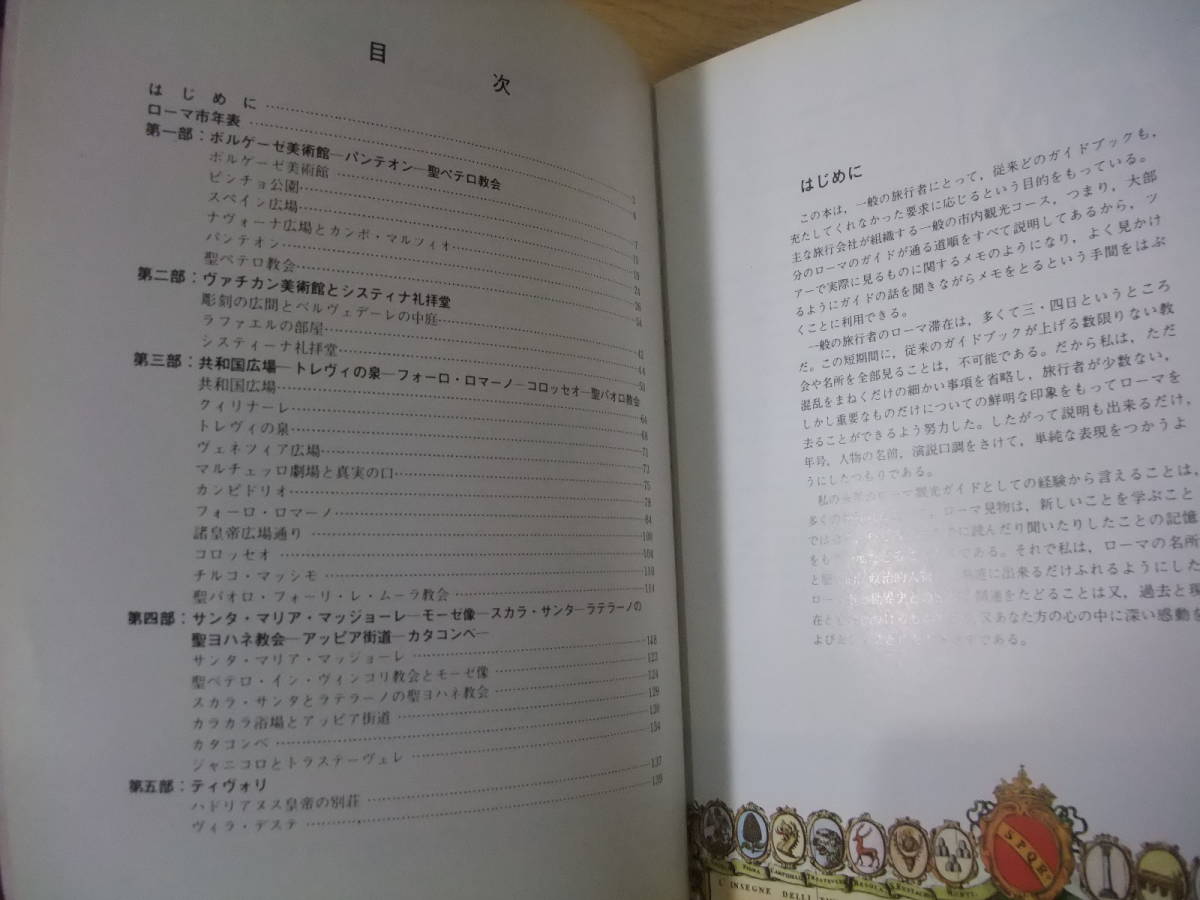 目次
はじめに
ローマ市年表
第一部：ボルゲーゼ美術館—パンテオン—聖ペテロ教会
ボルゲーゼ美術館
ピンチョ公園 5
スペイン広場 6
ナヴォーナ広場とカンポ・マルツィオ 7
パンテオン
聖ペテロ教会
第二部：ヴァチカン美術館とシスティナ礼拝堂
彫刻の広間とベルヴェデーレの中庭
ラファエルの部屋
システィーナ礼拝堂
第三部：共和国広場—トレヴィの泉—フォーロ・ロマーノ—コロッセオ—聖パオロ教会
共和国広場
クィリナーレ
トレヴィの泉
ヴェネツィア広場 71
マルチェッロ劇場と真実の口 73
カンピドリオ 75
フォーロ・ロマーノ
諸皇帝広場通り 84
コロッセオ 100
チルコ・マッシモ 104
聖パオロ・フォーリ・レ・ムーラ教会 110
第四部：サンタ・マリア・マッジョーレ—モーゼ像—スカラ・サンタ—ラテラーノの
聖ヨハネ教会—アッピア街道—カタコンベ—
サンタ・マリア・マッジョーレ
聖ペテロ・イン・ヴィンコリ教会とモーゼ像
スカラ・サンタとラテラーノの聖ヨハネ教会 124
カラカラ浴場とアッピア街道 129
カタコンベ
ジャニコロとトラステーヴェレ
第五部：ティヴォリ
ハドリアヌス皇帝の別荘 137
ヴィラ・デステ 139
はじめに
この本は，一般の旅行者にとって，従来どのガイドブックも，
充たしてくれなかった要求に応じるという目的をもっている。
主な旅行会社が組織する一般の市内観光コース，つまり，大部
分のローマのガイドが通る道順をすべて説明してあるから，ツ
アーで実際に見るものに関するメモのようになり，よく見かけ
るようにガイドの話を聞きながらメモをとるという手間をはぶ
くことに利用できる。
一般の旅行者のローマ滞在は，多くて三・四日というところ
だ。この短期間に，従来のガイドブックが上げる数限りない教
会や名所を全部見ることは，不可能である。だから私は，ただ
混乱をまねくだけの細かい事項を省略し，旅行者が少数ない，
しかし重要なものだけについての鮮明な印象をもってローマを
去ることができるよう努力した。したがって説明も出来るだけ，
年号，人物の名前，演説口調をさけて，単純な表現をつかうよ
うにしたつもりである。
私の ローマ観光ガイドとしての経験から言えることは，
多くの ，ローマ見物は，新しいことを学ぶこと
では に読んだり聞いたりしたことの記憶
を である。それで私は，ローマの名所
と 政治的人物 出来るだけふれるようにした
ロー 世界史と 関連をたどることは又，過去と現
在と 又あなた方の心の中に深い感動を
よび である。
SPQR
PIGNA CAMPITELLI TRASTEVERE REGOLA S. EUSTACHIO MONTI
L'INSEGNE DELLI